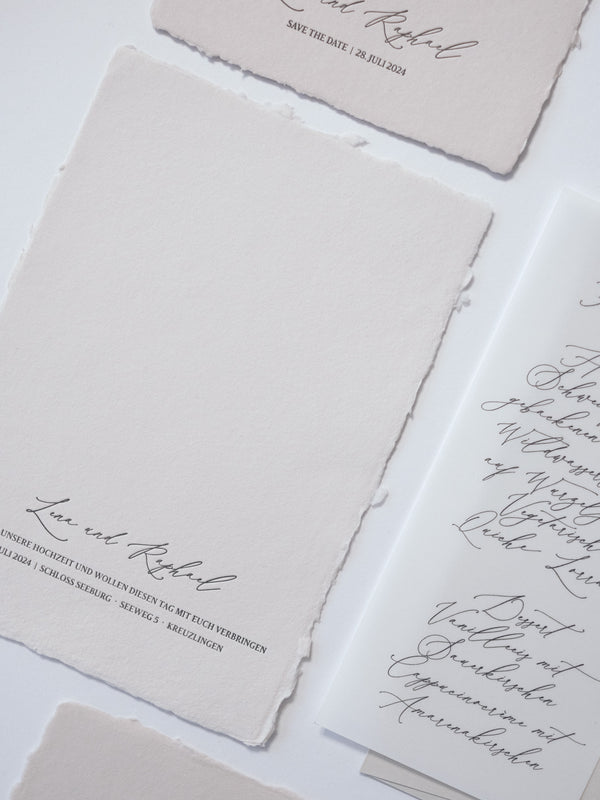 und Raphael
SAVE THE DATE | 28. JULI 2024
Lena und Raphael
UNSERE HOCHZEIT UND WOLLEN DIESEN TAG MIT EUCH VERBRINGEN
JULI 2024 | SCHLOSS SEEBURG · SEEWEG 5 · KREUZLINGEN
gebackenen
auf
Quiche
Dessert
Vanilleeis mit
Sauerkirschen
Cappucinocrème mit
Amarenakirschen